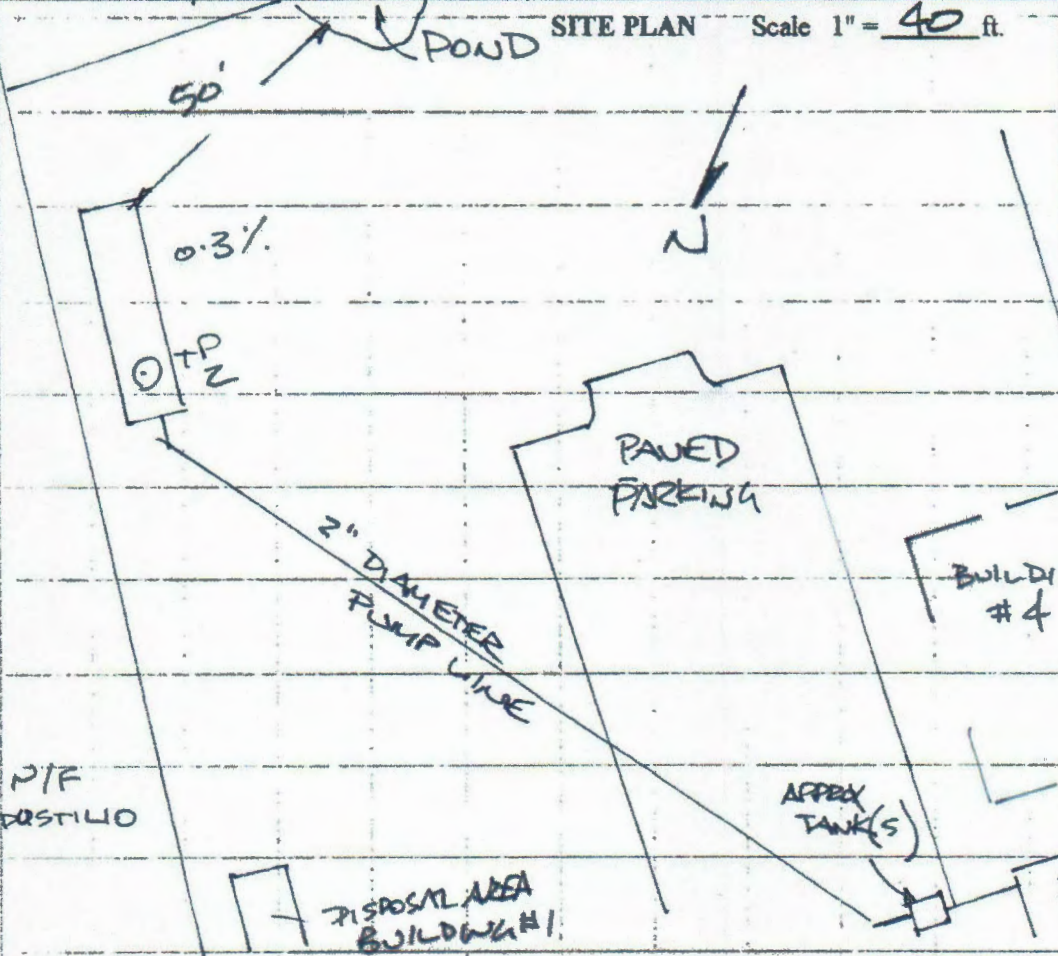 SITE PLAN Scale 1" = 40 ft.
POND
50'
N
0.3%
TP
2
PAVED
PARKING
2" DIAMETER
PUMP LINE
BUILDI
#4
N/F
APPROX
TANK(S)
DISPOSAL AREA
BUILDING #1